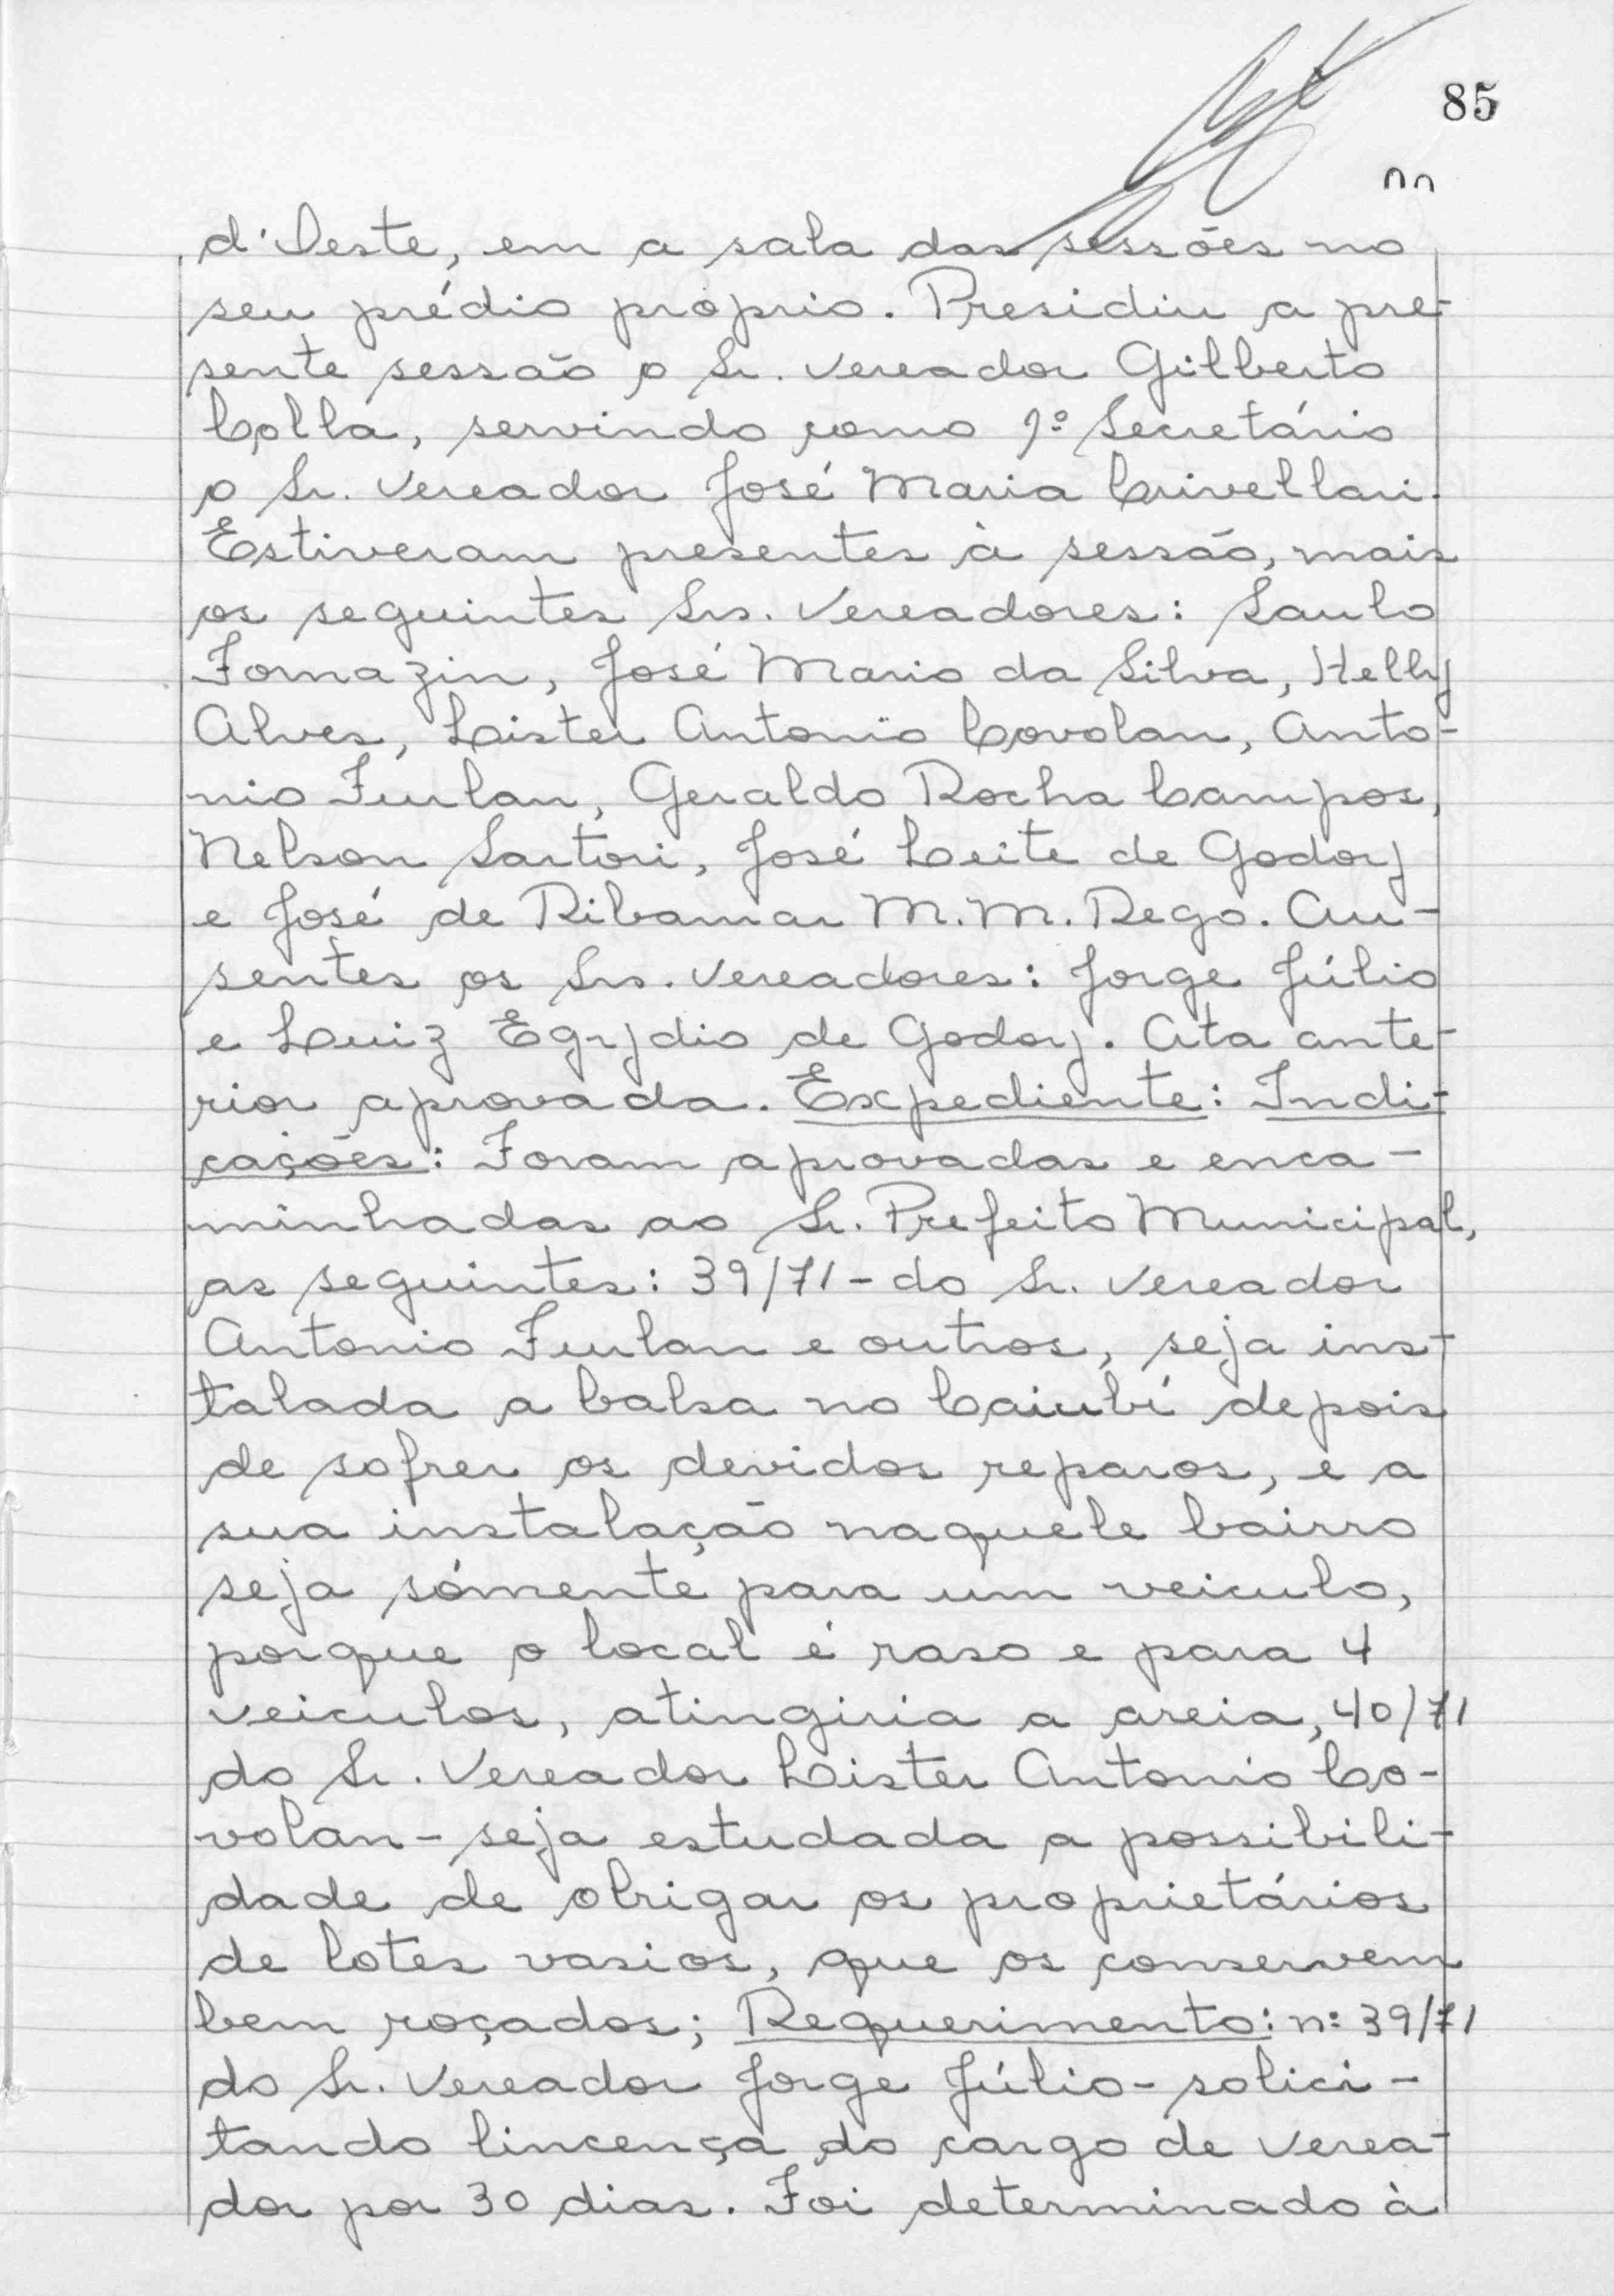 85
d'Oeste, em a sala das sessões no
seu prédio próprio. Presidiu a pre-
sente sessão o Sr. Vereador Gilberto
Colla, servindo como 1º Secretário
o Sr. Vereador José Maria Crivellari.
Estiveram presentes à sessão, mais
os seguintes Srs. Vereadores: Saulo
Fornazin, José Mario da Silva, Helly
Alves, Lister Antonio Covolan, Anto-
nio Furlan, Geraldo Rocha Campos,
Nelson Sartori, José Leite de Godoy
e José de Ribamar M. M. Rego. Au-
sentes os Srs. Vereadores: Jorge Júlio
e Luiz Egydio de Godoy. Ata ante-
rior aprovada. Expediente: Indi-
cações: Foram aprovadas e enca-
minhadas ao Sr. Prefeito Municipal,
as seguintes: 39/71 - do Sr. Vereador
Antonio Furlan e outros, seja ins-
talada a balsa no Caiubí depois
de sofrer os devidos reparos, e a
sua instalação naquele bairro
seja sómente para um veiculo,
porque o local é raso e para 4
veiculos, atingiria a areia, 40/71
do Sr. Vereador Lister Antonio Co-
volan - seja estudada a possibili-
dade de obrigar os proprietários
de lotes vasios, que os conservem
bem roçados; Requerimento: nº 39/71
do Sr. Vereador Jorge Júlio - solici-
tando lincença do cargo de verea-
dor por 30 dias. Foi determinado à